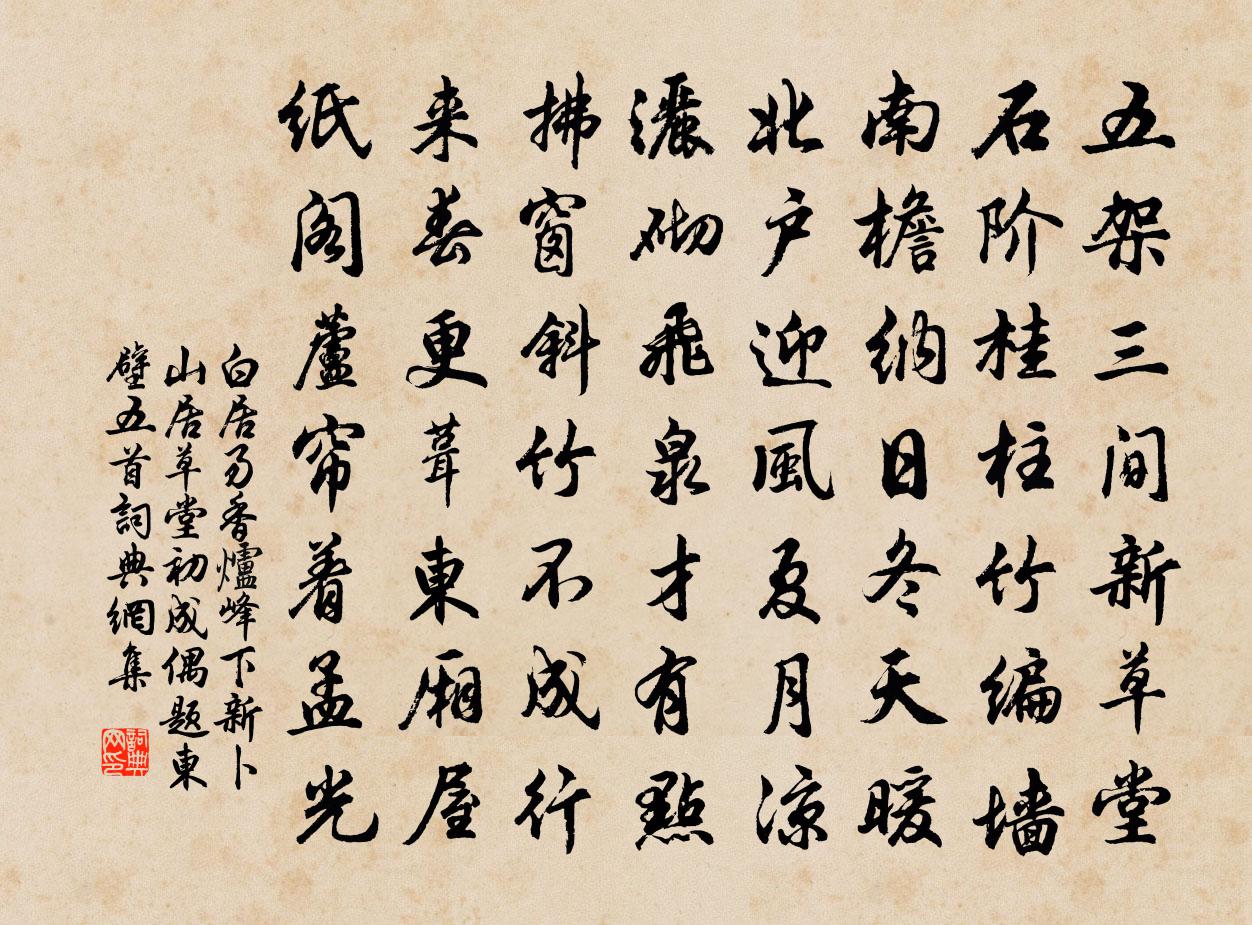 五架三间新草堂
石阶桂柱竹编墙
南檐纳日冬天暖
北户迎風夏月凉
灑砌飛泉才有點
拂窗斜竹不成行
来春更葺東厢屋
纸阁蘆帘着孟光
白居易香爐峰下新卜
山居草堂初成偶题東
壁五首詞典網集
詞典网印